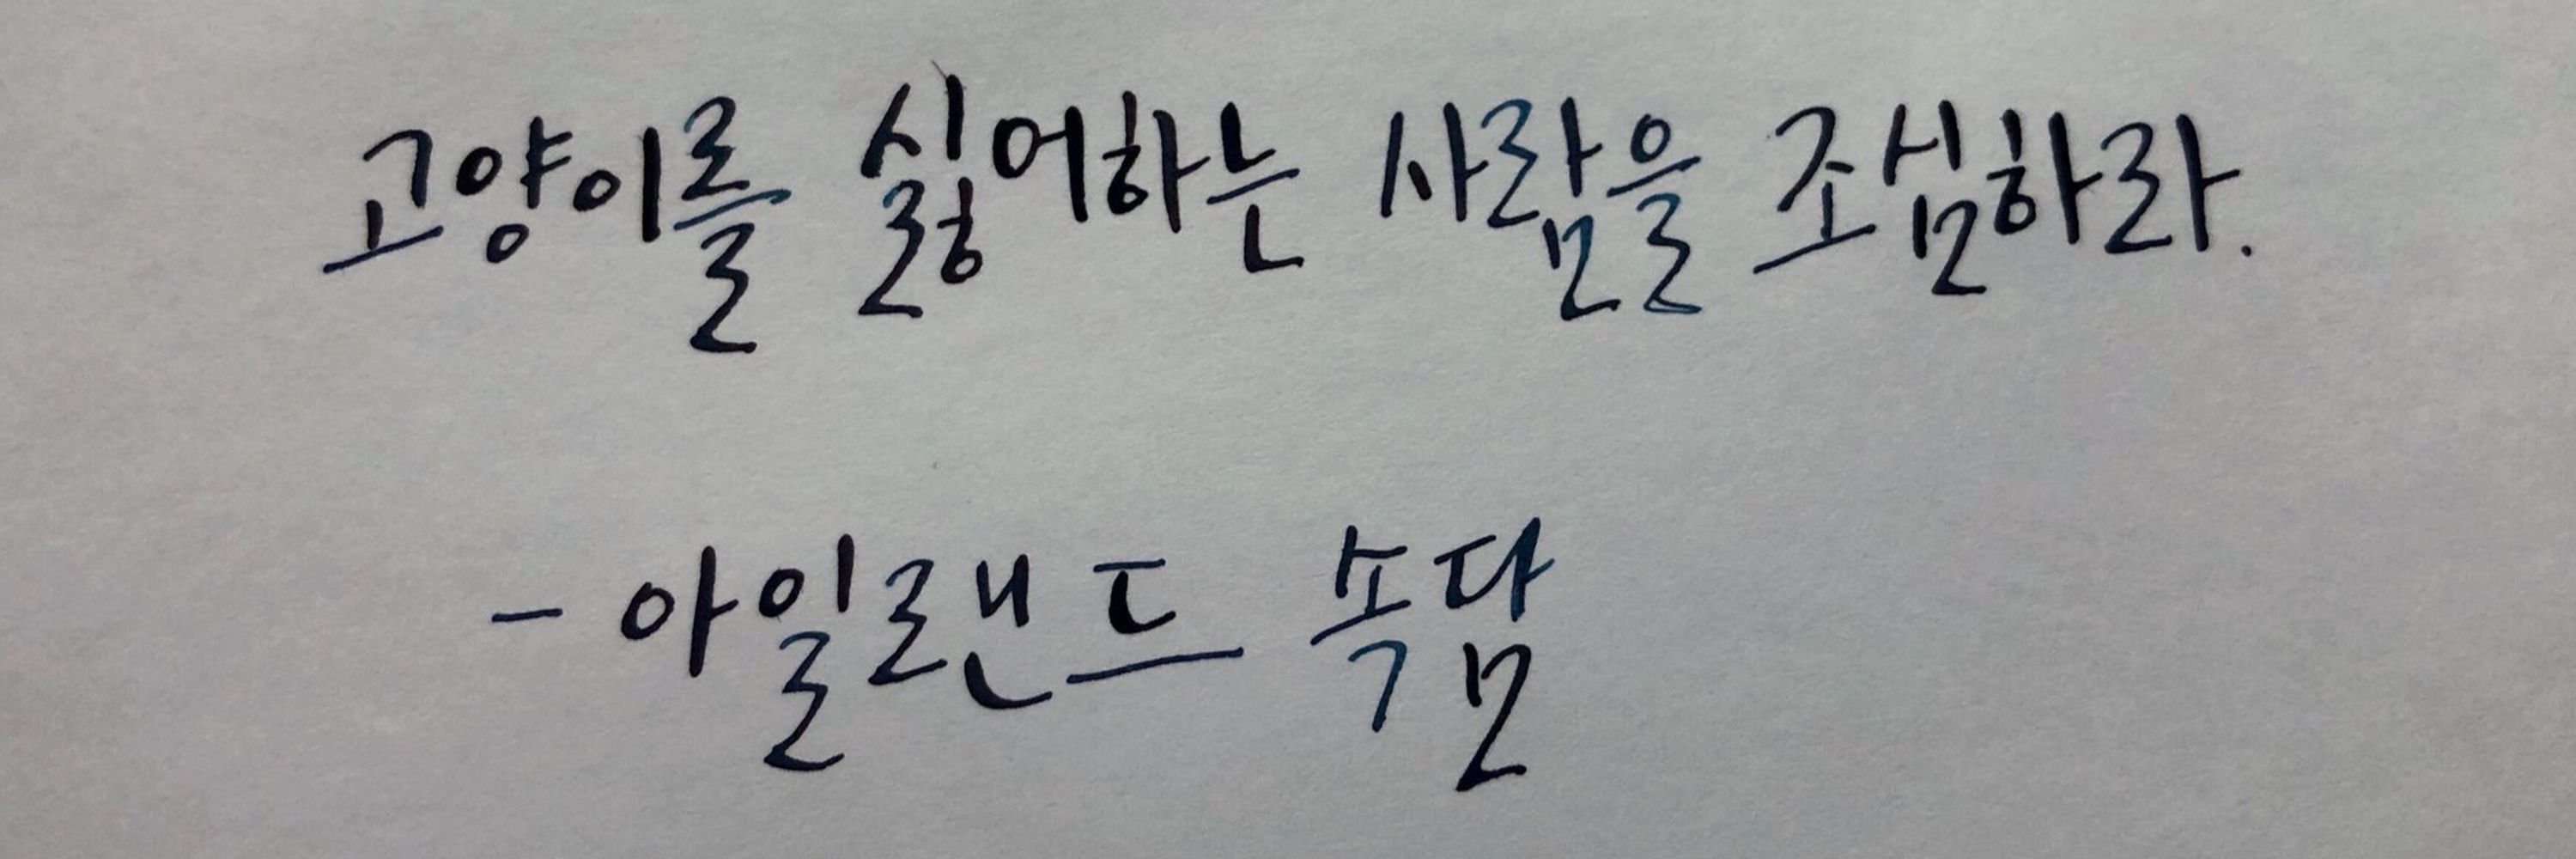 고양이를 싫어하는 사람을 조심하라.
- 아일랜드 속담